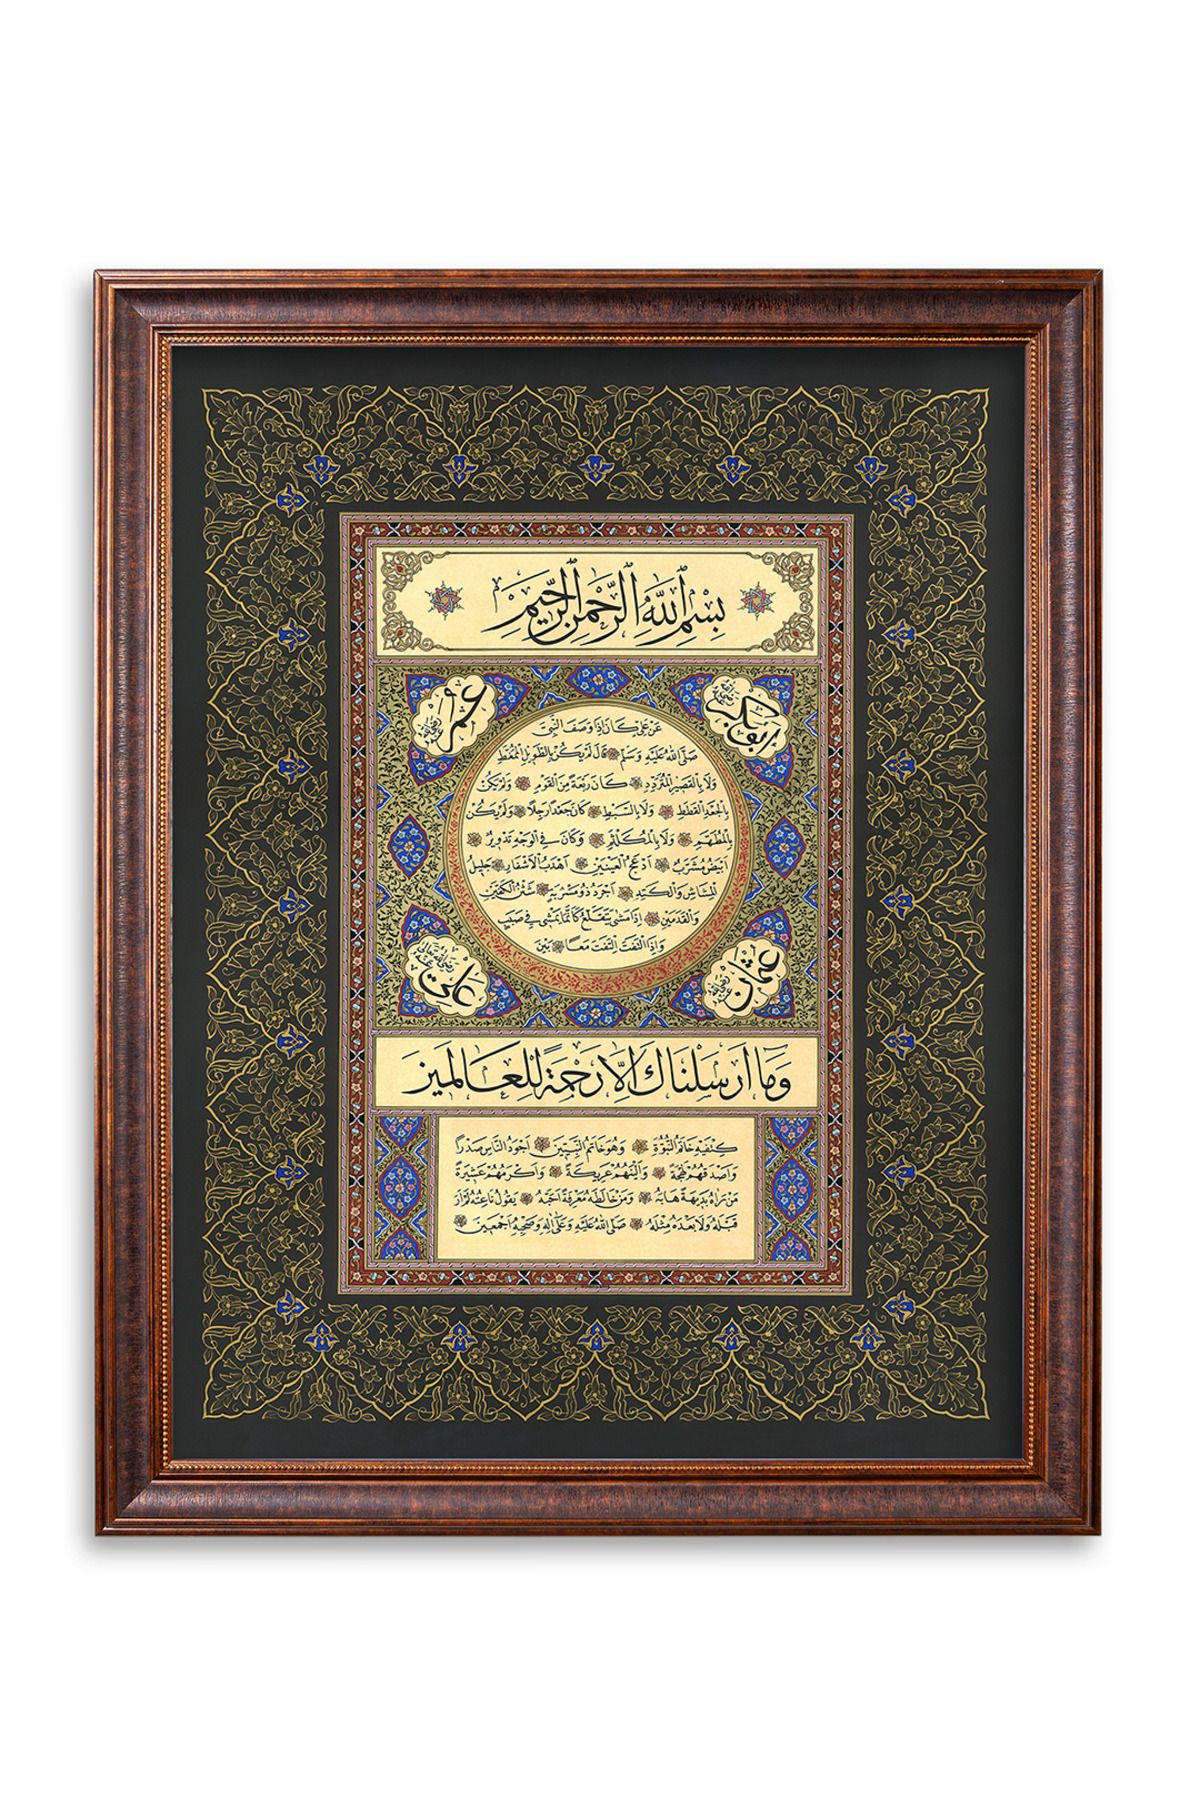 بِسْمِ اللهِ الرَّحْمٰنِ الرَّحِيمِ
ابو بكر رضى الله عنه
عمر رضى الله عنه
عَنْ عَلِيٍّ كَانَ اِذَا وَصَفَ النَّبِيَّ
صَلَّى اللهُ عَلَيْهِ وَسَلَّمَ قَالَ لَمْ يَكُنْ بِالطَّوِيلِ الْمُمَّغِطِ
وَلَا بِالْقَصِيرِ الْمُتَرَدِّدِ كَانَ رَبْعَةً مِنَ الْقَوْمِ وَلَمْ يَكُنْ
بِالْجَعْدِ الْقَطَطِ وَلَا بِالسَّبْطِ كَانَ جَعْدًا رَجِلًا وَلَمْ يَكُنْ
بِالْمُطَهَّمِ وَلَا بِالْمُكَلْثَمِ وَكَانَ فِي الْوَجْهِ تَدْوِيرٌ
اَبْيَضُ مُشْرَبٌ اَدْعَجُ الْعَيْنَيْنِ اَهْدَبُ الْاَشْفَارِ جَلِيلُ
الْمُشَاشِ وَالْكَتِدِ اَجْرَدُ ذُو مَسْرُبَةٍ شَثْنُ الْكَفَّيْنِ
وَالْقَدَمَيْنِ اِذَا مَشٰى يَتَقَلَّعُ كَاَنَّمَا يَمْشِي فِي صَبَبٍ
وَاِذَا الْتَفَتَ اِلْتَفَتَ مَعًا بَيْنَ
عثمان رضى الله عنه
على رضى الله تعالى عنه
وَمَا اَرْسَلْنَاكَ اِلَّا رَحْمَةً لِلْعَالَمِينَ
كِتْفَيْهِ خَاتَمُ النُّبُوَّةِ وَهُوَ خَاتَمُ النَّبِيِّينَ اَجْوَدُ النَّاسِ صَدْرًا
وَاَصْدَقُهُمْ لَهْجَةً وَاَلْيَنُهُمْ عَرِيكَةً وَاَكْرَمُهُمْ عَشِيرَةً
مَنْ رَاٰهُ بَدِيهَةً هَابَهُ وَمَنْ خَالَطَهُ مَعْرِفَةً اَحَبَّهُ يَقُولُ نَاعِتُهُ لَمْ اَرَ
قَبْلَهُ وَلَا بَعْدَهُ مِثْلَهُ صَلَّى اللهُ عَلَيْهِ وَعَلٰى اٰلِهِ وَصَحْبِهِ اَجْمَعِينَ